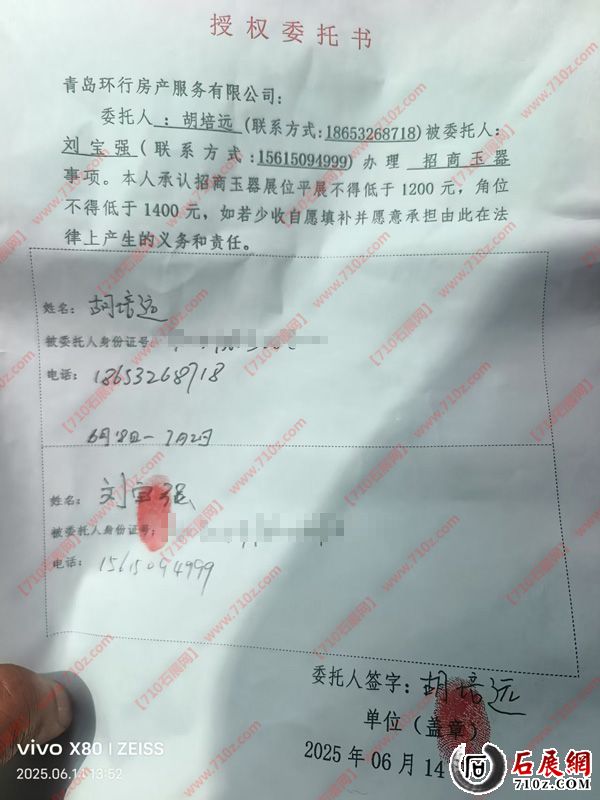 授权委托书
青岛环行房产服务有限公司：
委托人：胡培远(联系方式:18653268718)被委托人：
刘宝强(联系方式:15615094999)办理 招商玉器
事项。本人承认招商玉器展位平展不得低于1200元，角位
不得低于1400元，如若少收自愿填补并愿意承担由此在法
律上产生的义务和责任。
姓名：胡培远
被委托人身份证号：
电话：18653268718
6月18日-7月2日
姓名：刘宝强
被委托人身份证号：
电话：15615094999
委托人签字：胡培远
单位（盖章）
2025年06月14
vivo X80 | ZEISS
2025.06.14 13:52
石展網
710z.com
【710石展网】www.710z.com